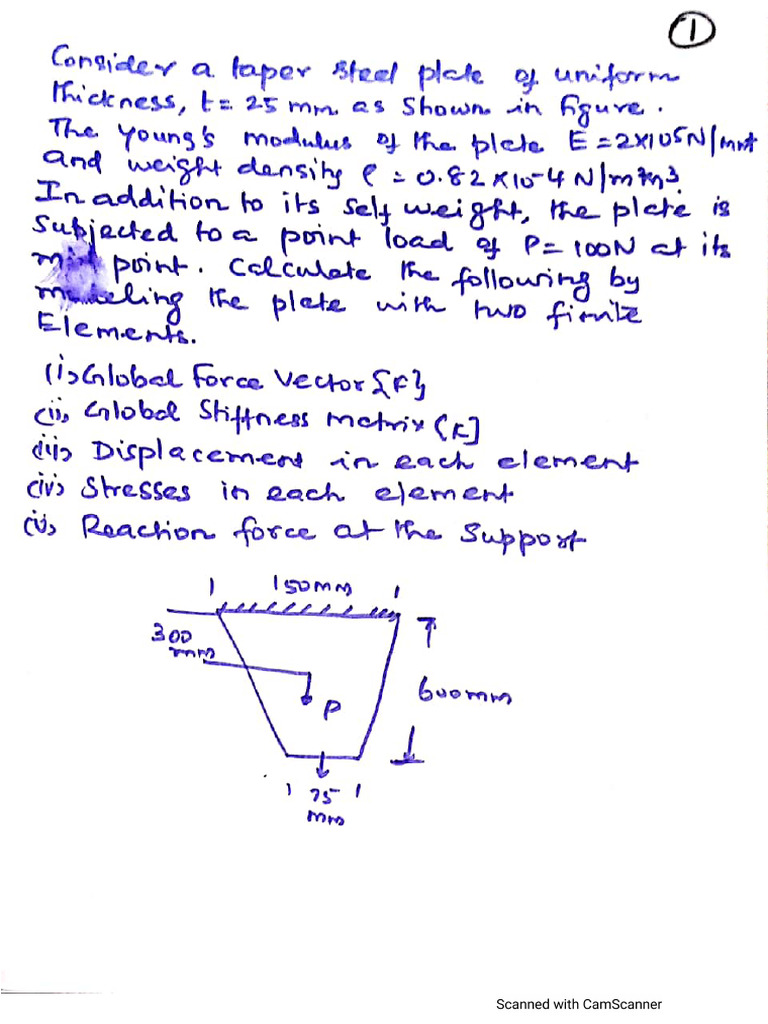 1
Consider a taper steel plate of uniform
thickness, t = 25 mm as shown in figure.
The Young's modulus of the plate E = 2×105 N/mm2
and weight density ρ = 0.82×10-4 N/mm3.
In addition to its self weight, the plate is
Subjected to a point load of P = 100N at its
mid point. Calculate the following by
modeling the plate with two finite
Elements.
(i) Global Force Vector {F}
(ii) Global Stiffness matrix [K]
(iii) Displacement in each element
(iv) Stresses in each element
(v) Reaction force at the Support
150mm
300
mm
P
600mm
75
mm
Scanned with CamScanner